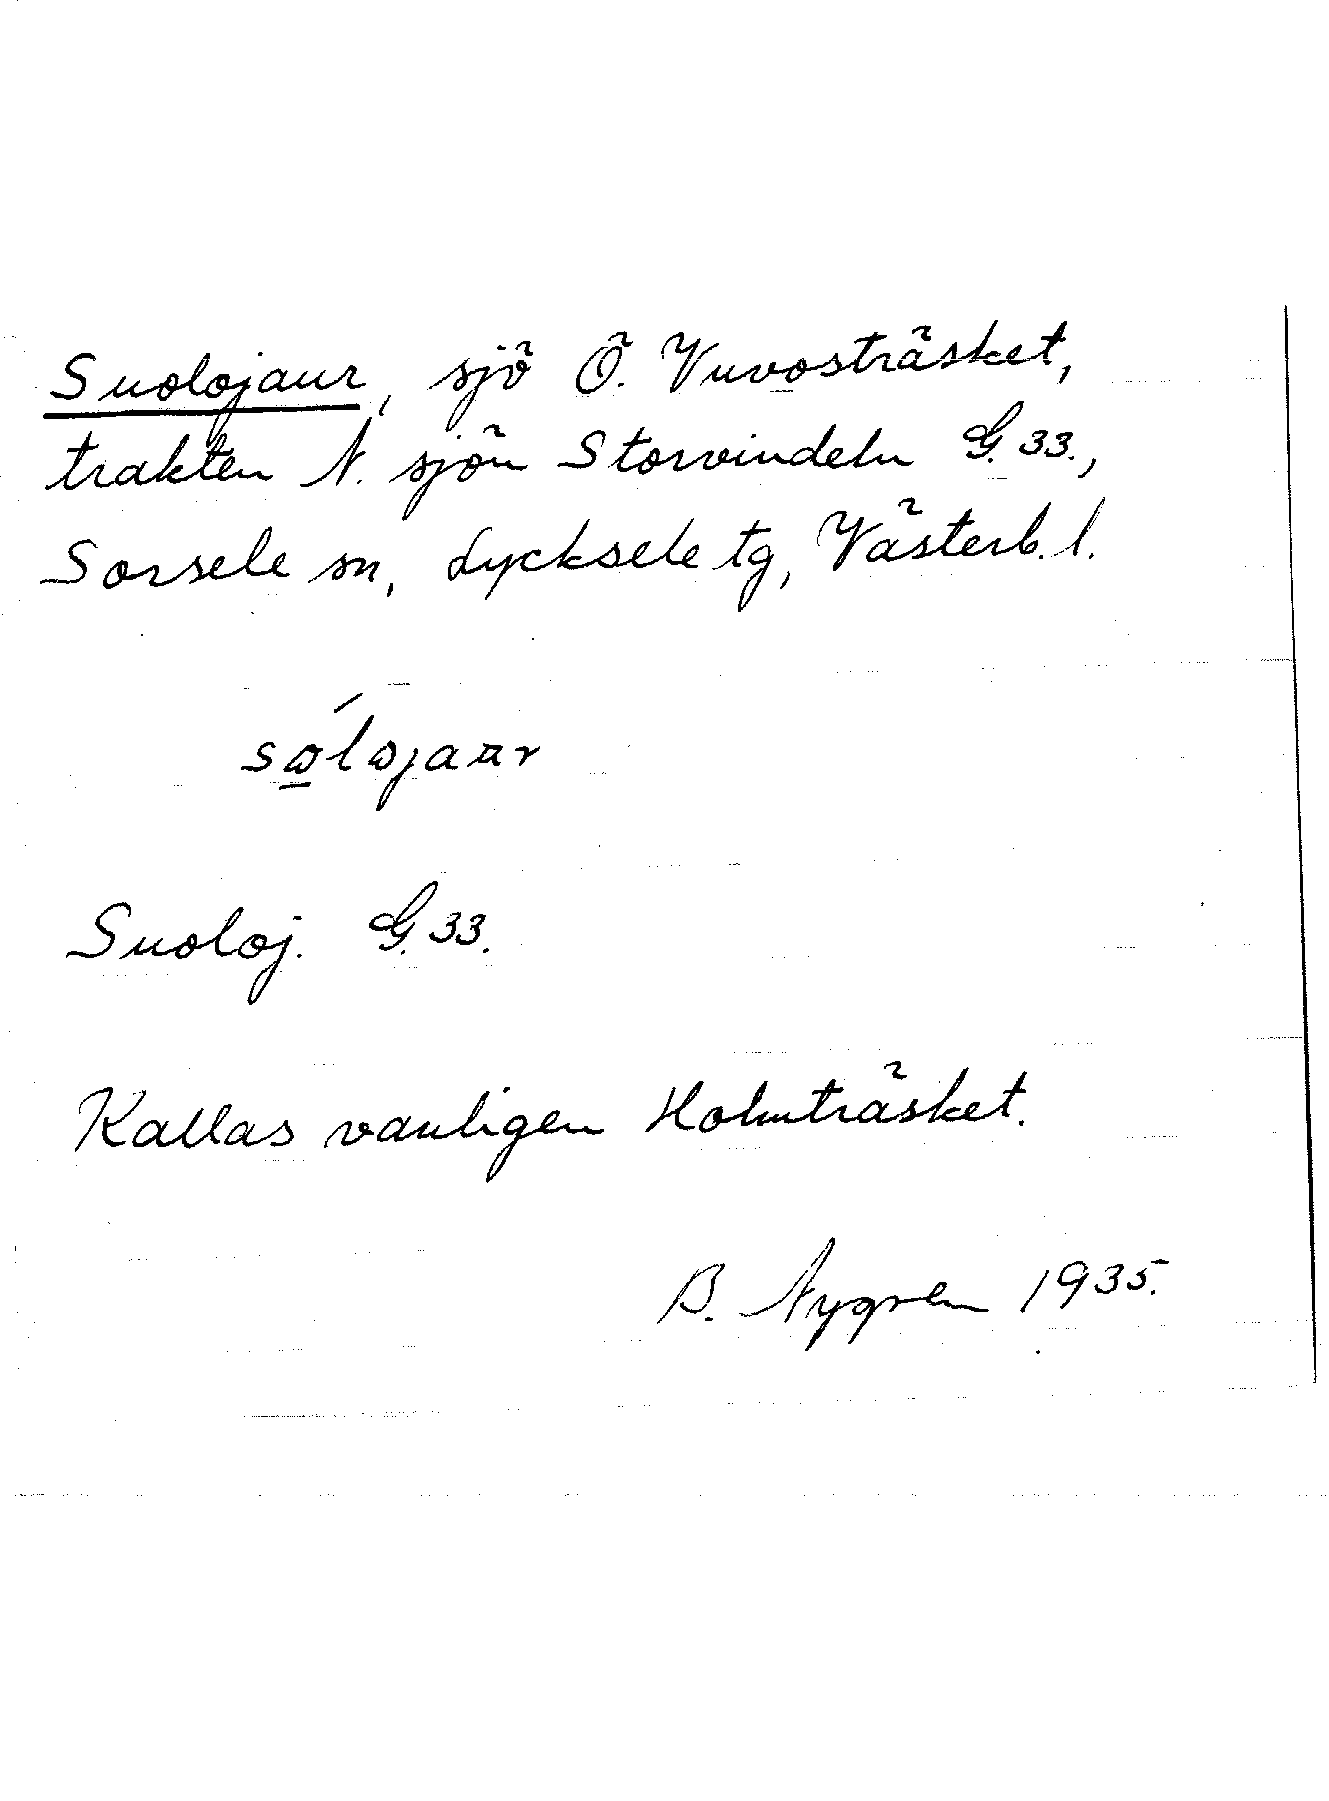 Suolojaur, sjö Ö. Vuvosträsket,
trakten N. sjön Storvindeln G. 33.,
Sorsele sn, Lycksele tg, Västerb. l.
Suoloj. G. 33.
Kallas vanligen Holmträsket.
B. Nygren 1935.